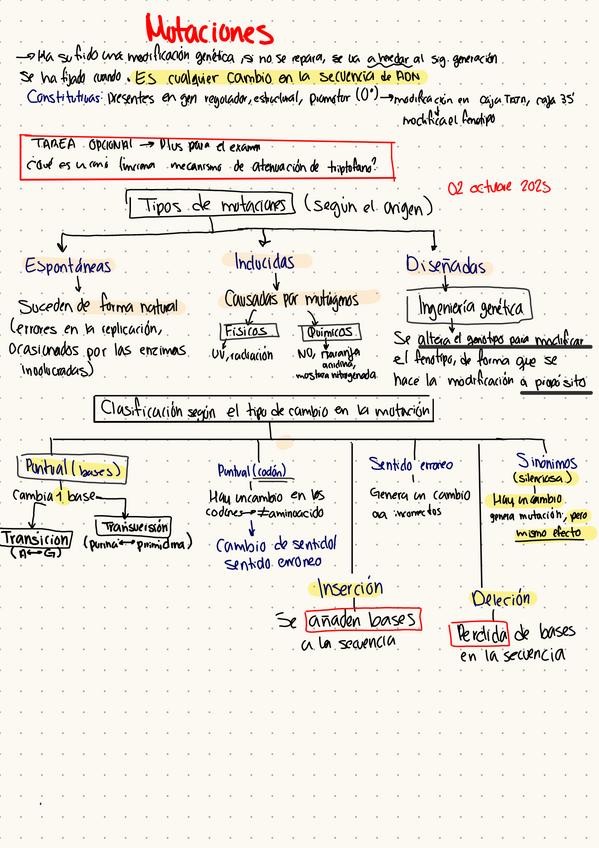 Mutaciones
→ Ha sufrido una modificación genética, si no se repara, se va a heredar al sig. generación.
Se ha fijado cuando. Es cualquier cambio en la secuencia de ADN
Constitutivas: Presentes en gen regulador, estructural, promotor (O°) → modificación en caja TATA, caja 35
modifica el fenotipo
TAREA OPCIONAL → Plus para el examen
¿Qué es y cómo funciona mecanismo de atenuación de triptofano?
02 octubre 2025
Tipos de mutaciones (según el origen)
Espontáneas
Suceden de forma natural
(errores en la replicación,
ocasionados por las enzimas
involucradas)
Inducidas
Causadas por mutágenos
Físicos
UV, radiación
Químicos
NO, naranja
acridina,
mostaza nitrogenada
Diseñadas
Ingeniería genética
Se altera el genotipo para modificar
el fenotipo, de forma que se
hace la modificación a propósito
Clasificación según el tipo de cambio en la mutación
Puntual (bases)
Cambia 1 base
Transición
(A↔G)
Transversión
(purina ↔ pirimidina)
Puntual (codón)
Hay un cambio en los
codones → ≠ aminoacido
Cambio de sentido/
sentido erroneo
Sentido erroneo
Genera un cambio
aa incorrectos
Sinónimos
(silenciosa)
Hay un cambio
genera mutación, pero
mismo efecto
Inserción
Se añaden bases
a la secuencia
Deleción
Perdida de bases
en la secuencia